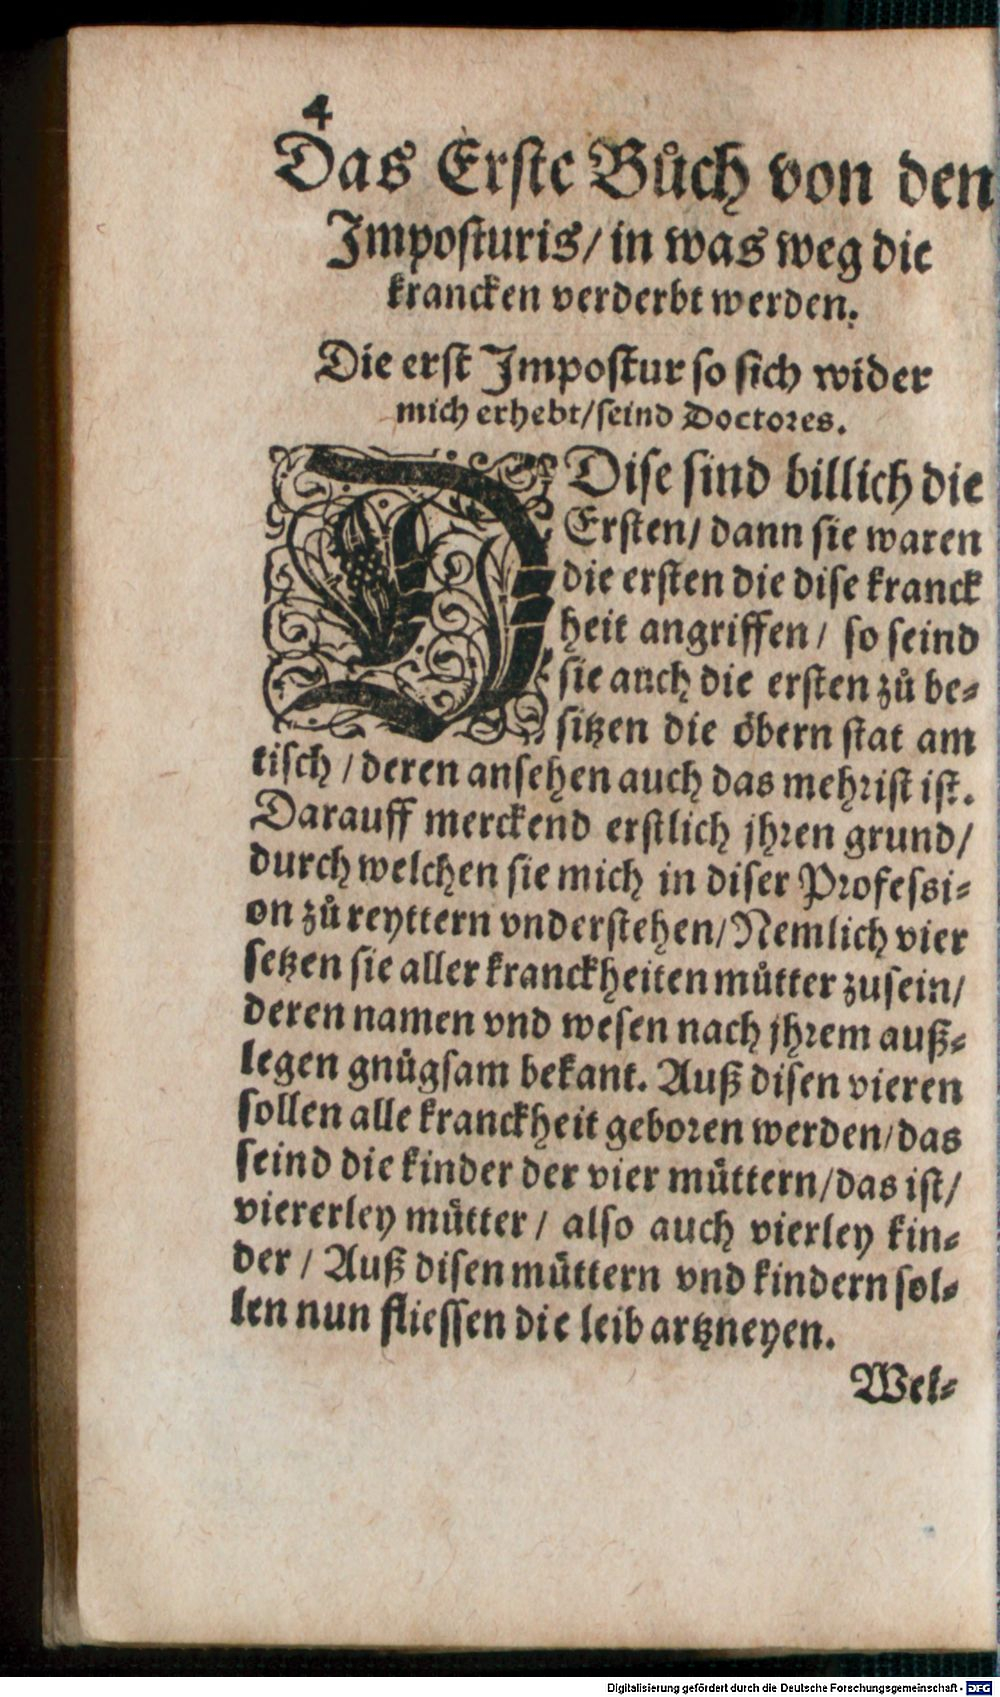 4
Das Erste Bůch von den
Imposturis/ in was weg die
krancken verderbt werden.
Die erst Impostur so sich wider
mich erhebt/seind Doctores.
DDise sind billich die
Ersten/ dann sie waren
die ersten die dise kranck
heit angriffen/ so seind
sie auch die ersten zů be-
sitzen die öbern stat am
tisch/deren ansehen auch das mehrist ist.
Darauff merckend erstlich jhren grund/
durch welchen sie mich in diser Professi-
on zů reyttern vnderstehen/Nemlich vier
setzen sie aller kranckheiten můtter zusein/
deren namen vnd wesen nach jhrem auß-
legen gnůgsam bekant. Auß disen vieren
sollen alle kranckheit geboren werden/das
seind die kinder der vier můttern/das ist/
viererley můtter/ also auch vierley kin-
der/ Auß disen můttern vnd kindern sol-
len nun fliessen die leib artzneyen.
Wel-
Digitalisierung gefördert durch die Deutsche Forschungsgemeinschaft - DFG